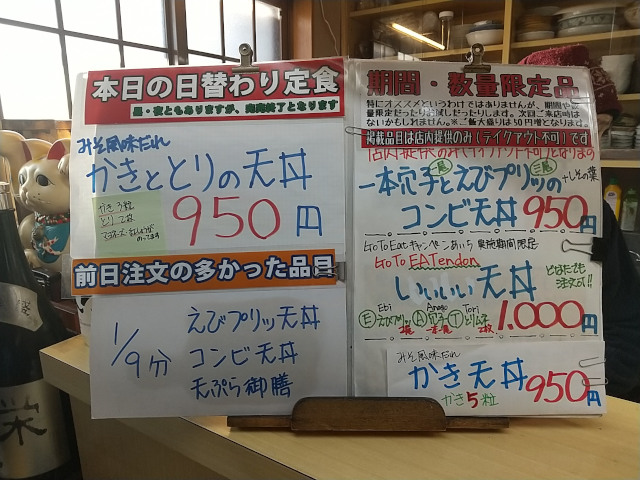 本日の日替わり定食
昼・夜ともありますが、完売終了となります
みそ風味だれ
かきととりの天丼
かき3粒
とり2枚
のってます
950円
前日注文の多かった品目
1/9分
えびプリッ天丼
コンビ天丼
天ぷら御膳
期間・数量限定品
特にオススメというわけではありませんが、期間や
量限定だったりお試しだったりします。次回ご来店時は
ないかもしれません。※ご飯大盛りは50円増となります。
掲載品目は店内提供のみ(テイクアウト不可)です
一本穴子とえびプリッの
+しその葉
コンビ天丼 950円
GoToEatキャンペーンあいち 実施期間限定
GoTo EATendon
いいいい天丼
どなたでも
注文可!!
Ebi Anago Tori
Ⓔえびプリッ Ⓐ穴子 Ⓣとりムネ
2枚
1.000円
みそ風味だれ
かき天丼 950円
かき5粒
栄